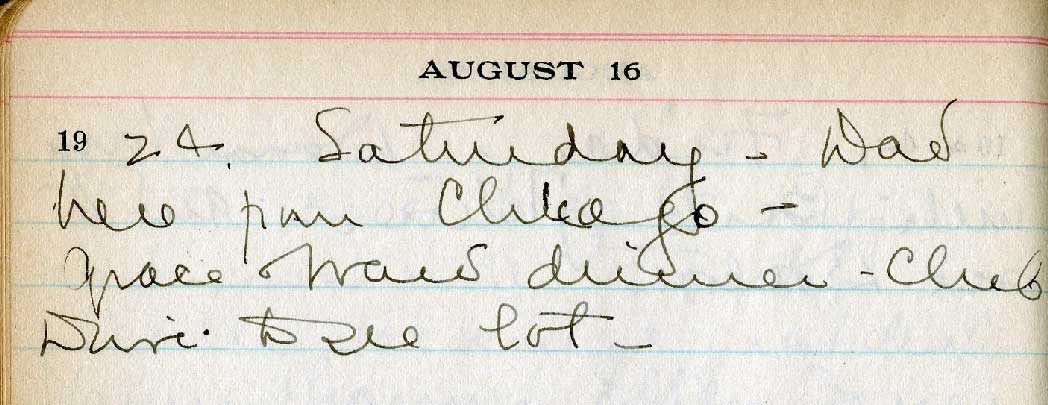 AUGUST 16
1924. Saturday - Dad
here from Chicago -
Grace Ward dinner - Club
to see lot -